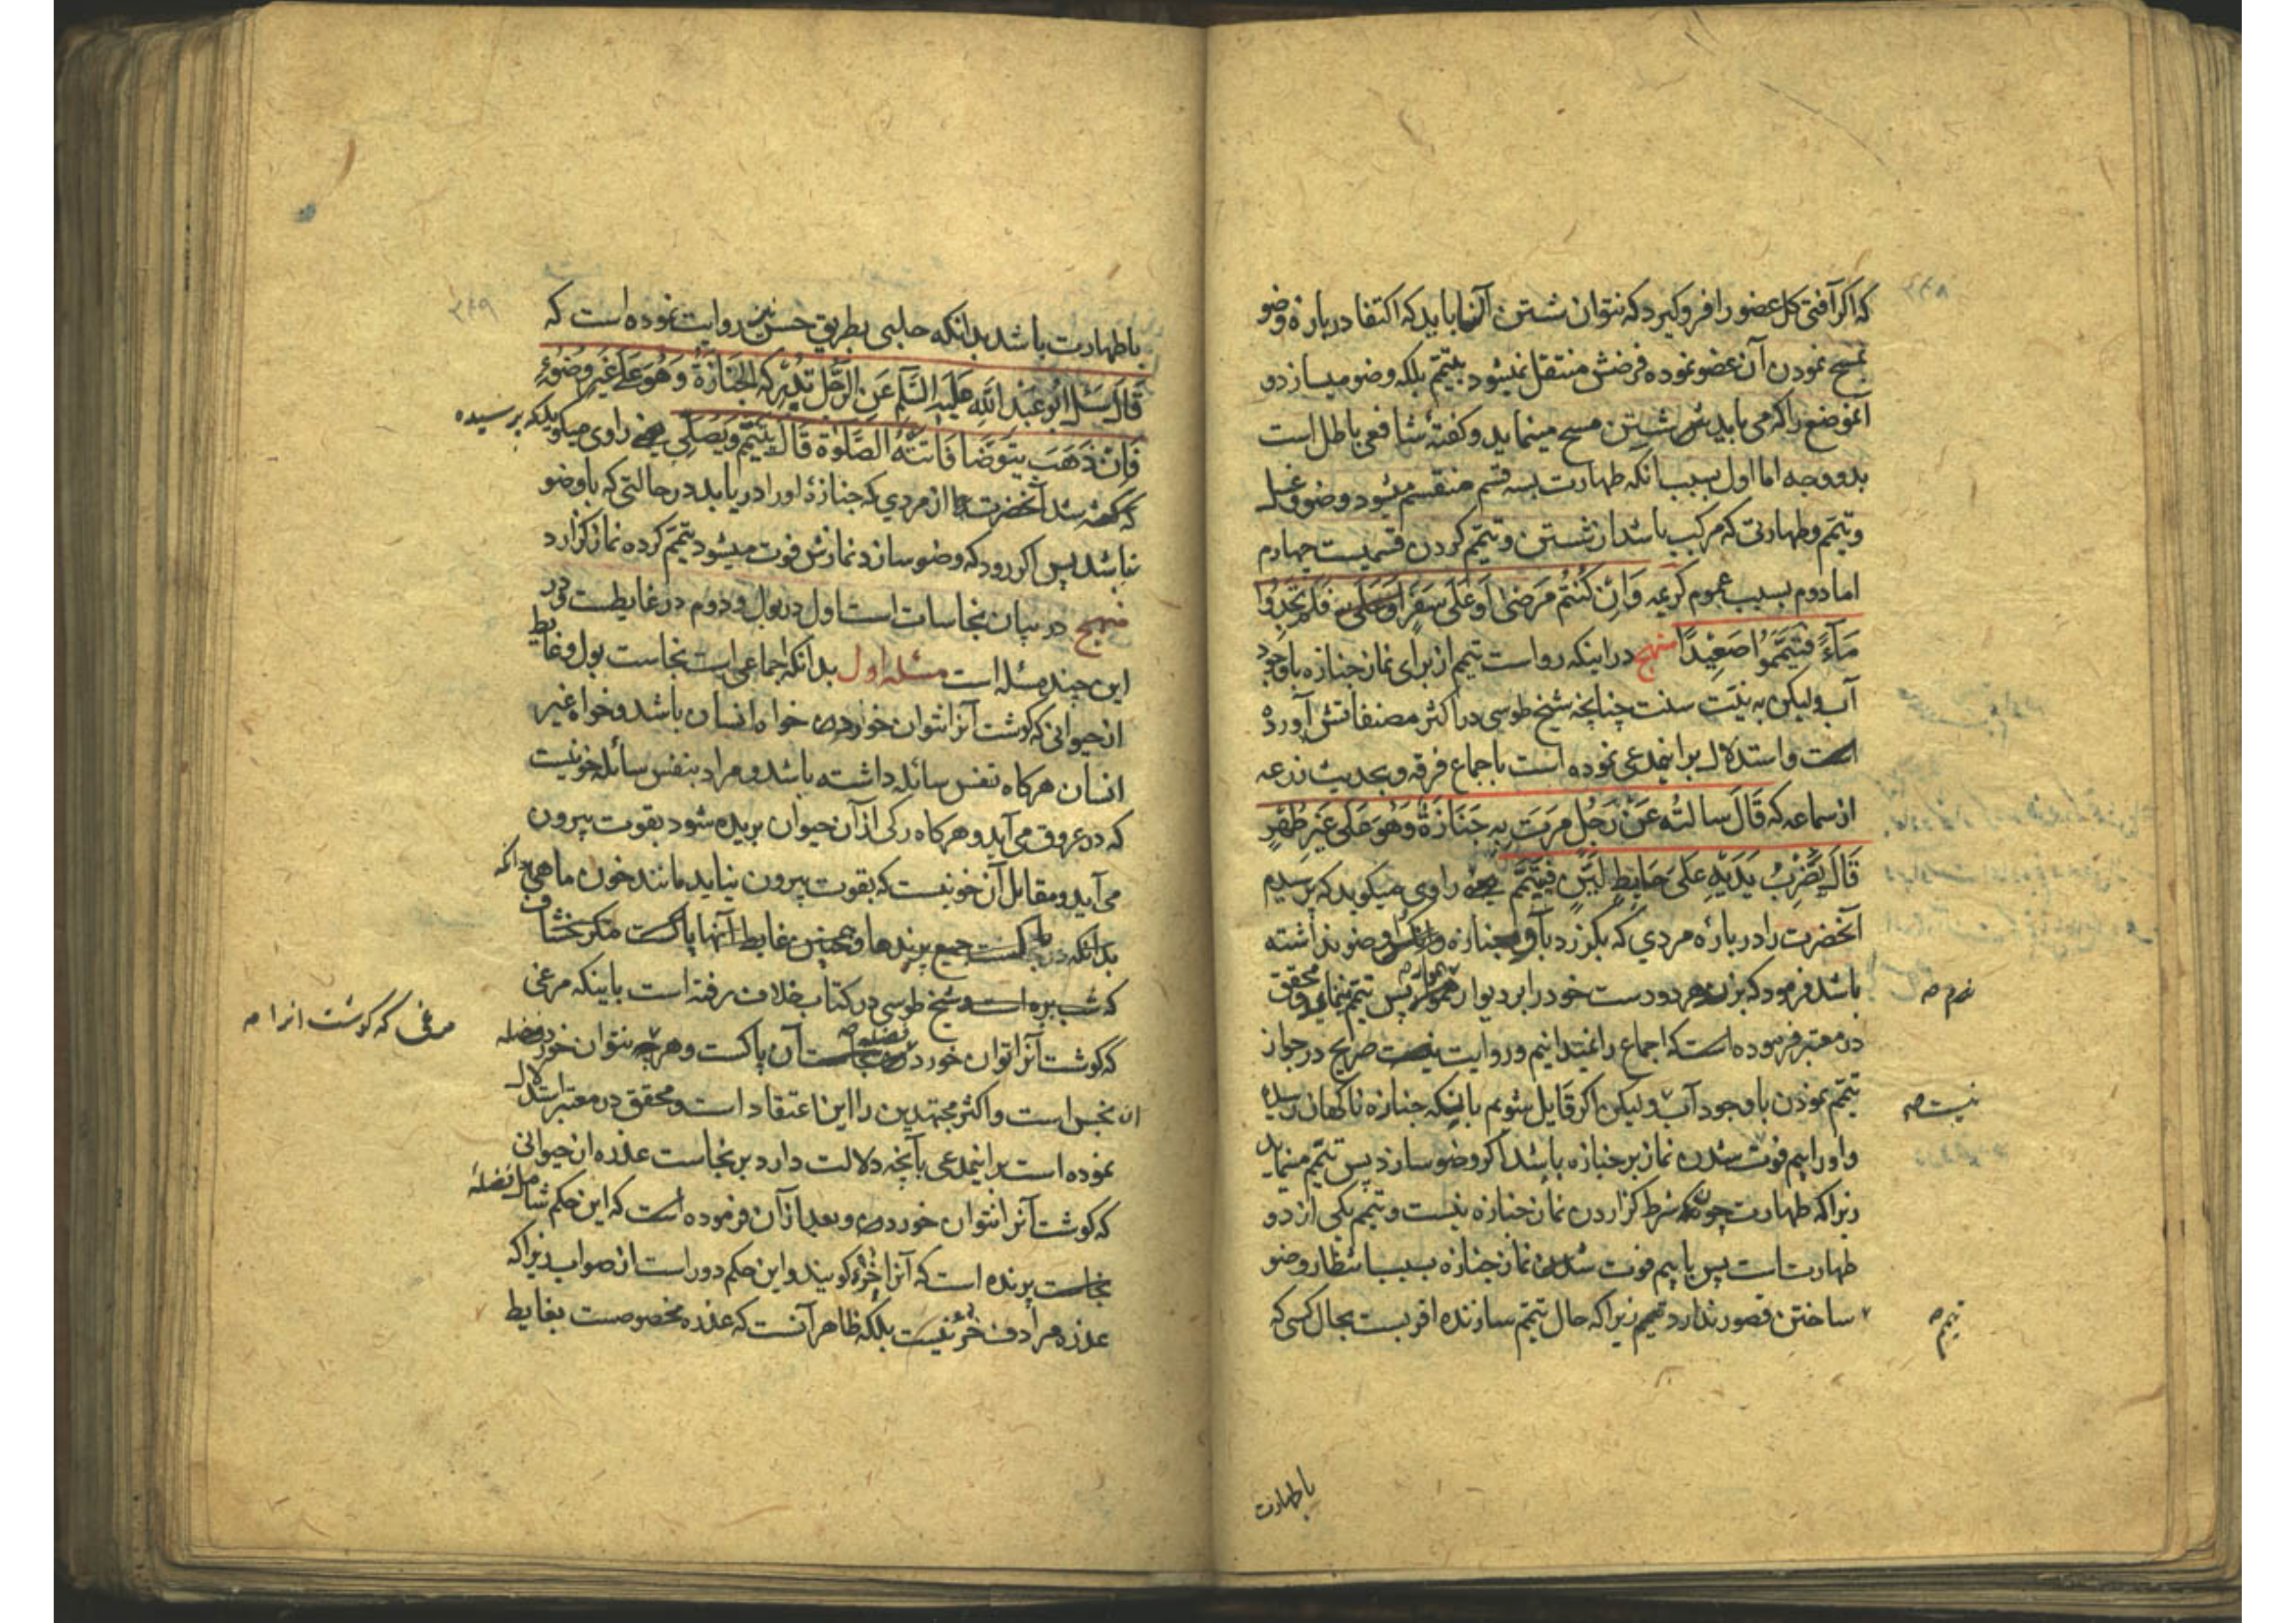 که اگر آفتی کل عضو را فرو گیرد که نتوان شستن آنرا باید که اکتفا در باره وضو
بمسح نمودن آن عضو نموده فرضش منتقل نمیشود بتیمم بلکه وضو میسازد و
آنموضع را که می باید شستن مسح مینماید و کفتهٔ شافعی باطل است
بدو وجه اما اول بسبب انکه طهارت بسه قسم منقسم میشود وضو و غسل
و تیمم و طهارتی که مرکب باشد از شستن و تیمم کردن قسمیست چهارم
اما دوم بسبب عموم کریمه وَاِنْ كُنْتُمْ مَرْضىٰ اَوْ عَلىٰ سَفَرٍ فَلَمْ تَجِدُوا
مَآءً فَتَيَمَّمُوا صَعِيْدًا منهج در اینکه رواست تیمم از برای نماز جنازه با وجود
آب ولیکن به نیّت سنت چنانچه شیخ طوسی در اکثر مصنفاتش آورده
است و استدلال بر اینمدعی نموده است باجماع فرقه و بحدیث زرعه
از سماعه که قَالَ سالتُه عَنْ رَجُلٍ مرَّت بِهِ جَنَازَةٌ وَهُوَ عَلىٰ غَيْرِ طُهْرٍ
قَالَ يَضْرِبُ يَدَيْهِ عَلىٰ حَايِطِ لَبِنٍ فيتيمّم یعنی راوی میگوید که پرسیدم
آنحضرت را در بارهٔ مردی که بگذرد باو جنازه و وضو نداشته
باشد فرمود که بزند هر دو دست خود را بر دیوار پس تیمم نماید و محقق
در معتبر فرموده است که اجماع را نمیدانیم و روایت نیست صریح در جواز
تیمم نمودن با وجود آب ولیکن اگر قایل شویم باینکه جنازه ناکهان رسیده
و او را بیم فوت شدن نماز بر جنازه باشد اگر وضو سازد پس تیمم مینماید
زیرا که طهارت چون شرط گزاردن نماز جنازه نیست و تیمم یکی از دو
طهارت است پس با بیم فوت شدن نماز جنازه بسبب انتظار وضو
ساختن قصور ندارد تیمم زیرا که حال تیمم سازنده اقربست بحال کسی که
نیست صح
تیمم صح
با طهارت
با طهارت باشد بدانکه حلبی بطریق حسن نیز روایت نموده است که
قَالَ سئل ابُو عَبْدِ اللّٰهِ عَلَيْهِ السَّلَم عَنِ الرَّجُلِ تُدْرِكُه الْجَنَازَةُ وَهُوَ عَلىٰ غَيْرِ وُضُوْءٍ
فَاِنْ ذَهَبَ يَتَوَضَّأ فَاتَتْهُ الصَّلوٰة قَالَ يَتَيَمَّم وَيُصَلِّي یعنی راوی میگوید که پرسیده
شد آنحضرت از مردی که جنازهٔ او را دریابد در حالتی که با وضو
نباشد پس اگر رود که وضو سازد نمازش فوت میشود تیمم کرده نماز گزارد
منهج در بیان نجاسات است اول در بول و دوم در غایطست و در
این چند مسئله است مسئله اول بدانکه اجماعی است نجاست بول و غایط
از حیوانی که گوشت آنرا نتوان خوردن خواه انسان باشد و خواه غیر
انسان هر گاه نفس سائله داشته باشد و مراد بنفس سائله خونیست
که در عروق می آید و هر گاه رکی از آن حیوان بریده شود بقوت بیرون
می آید و مقابل آن خونیست که بقوت بیرون نیاید مانند خون ماهی
بدانکه جمیع پرندها و همچنین غایط آنها پاکست مگر خشاف
که شب پره است و شیخ طوسی در کتاب خلاف رفته است باینکه مرغی
که گوشت آنرا توان خورد آن پاکست و هر چه نتوان خورد فضله
ان نجس است و اکثر مجتهدین را این اعتقاد است و محقق در معتبر استدلال
نموده است بر اینمدعی بآنچه دلالت دارد بر نجاست عذره از حیوانی
که گوشت آنرا نتوان خوردن و بعد از آن فرموده است که این حکم شامل فضلهٔ
پرنده است که آنرا خُرْء گویند و این حکم دور است از صواب زیرا که
عذره مرادف خرء نیست بلکه ظاهر آنست که عذره مخصوصست بغایط
مرغی که گوشت انرا صح